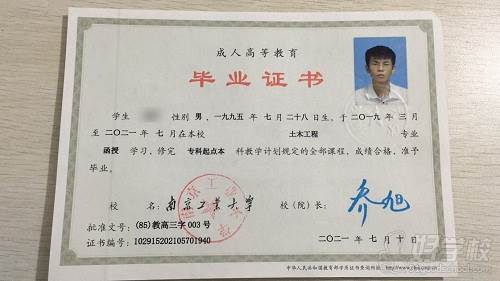 成人高等教育
毕业证书
学生 性别 男，一九九五年 七 月 二十八 日生，于二〇一九年 三 月
至 二〇二一 年 七 月在本校 土木工程 专业
函授 学习，修完 专科起点本 科教学计划规定的全部课程，成绩合格，准予
毕业。
校 名：南京工业大学 校（院）长：乔旭
批准文号：(85)教高三字 003 号
证书编号：102915202105701940 二〇二一 年 七 月 十 日
中华人民共和国教育部学历证书查询网址：http://www.chsi.com.cn
好学校